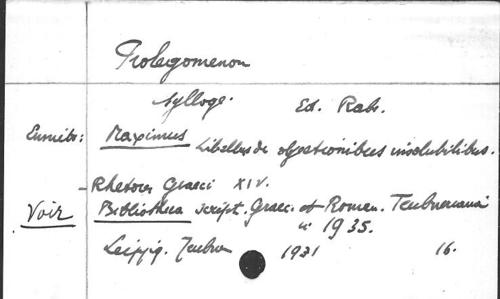 Prolegomenon
Sylloge. Ed. Rabe.
Maximus Libellus de objectionibus insolubilibus.
- Rhetores Graeci XIV.
Voir Bibliotheca script. Graec. et Roman. Teubneriana
" 1935.
Leipzig. Teubner 1931 16.